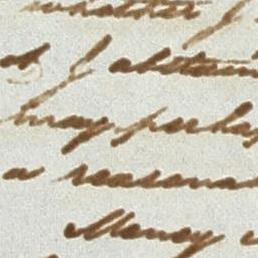 whether I
I abstain
may perhap
a reasona
Money